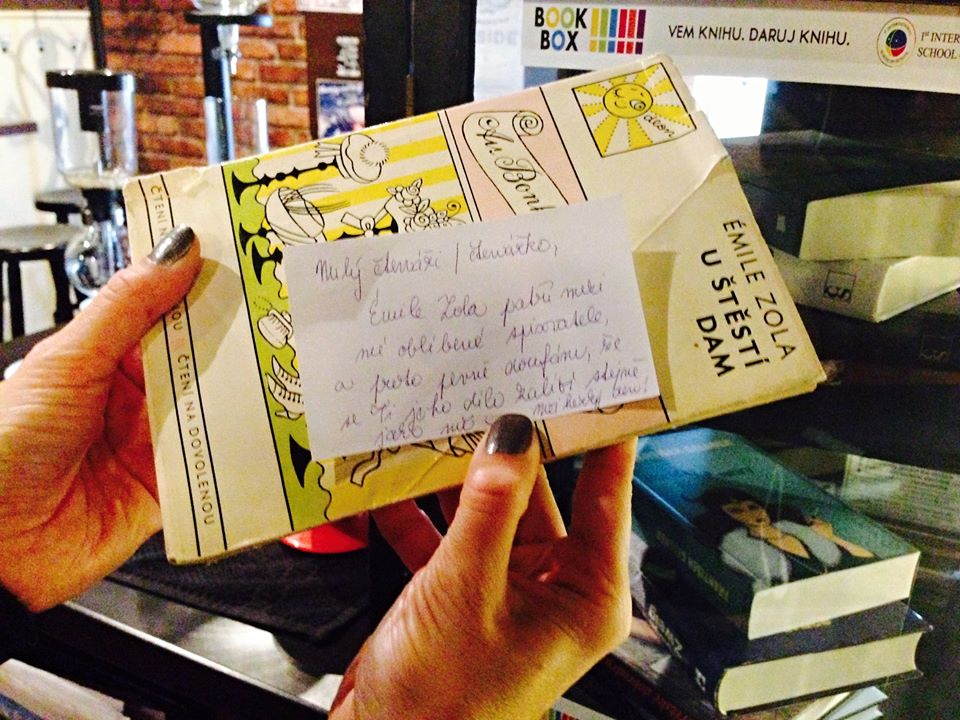 BOOK
BOX
VEM KNIHU. DARUJ KNIHU.
1st INTER
SCHOOL
Odeon
Au Bonh
ÉMILE ZOLA
U ŠTĚSTÍ
DAM
ČTENÍ N
OU
ČTENÍ NA DOVOLENOU
Milý čtenáři / čtenářko,
Émile Zola patří mezi
mé oblíbené spisovatele,
a proto pevně doufám, že
se Ti jeho dílo zalíbí stejně
jako mě
Mej hezký den!